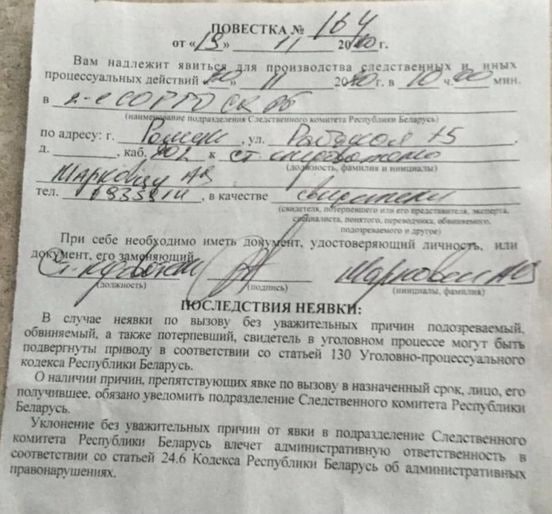 ПОВЕСТКА № 164
от «19» 11 2020 г.
Вам надлежит явиться для производства следственных и иных
процессуальных действий «20» 11 2020 г. в 10 ч. 00 мин.
в
(наименование подразделения Следственного комитета Республики Беларусь)
по адресу: г. , ул. 15
д. , каб. 202 к ст. следователю
(должность, фамилия и инициалы)
Маркович
тел. , в качестве
(свидетеля, потерпевшего или его представителя, эксперта,
специалиста, понятого, переводчика, обвиняемого,
подозреваемого и другое)
При себе необходимо иметь документ, удостоверяющий личность, или
документ, его заменяющий.
Маркович
(должность) (подпись) (инициалы, фамилия)
ПОСЛЕДСТВИЯ НЕЯВКИ:
В случае неявки по вызову без уважительных причин подозреваемый,
обвиняемый, а также потерпевший, свидетель в уголовном процессе могут быть
подвергнуты приводу в соответствии со статьей 130 Уголовно-процессуального
кодекса Республики Беларусь.
О наличии причин, препятствующих явке по вызову в назначенный срок, лицо, его
получившее, обязано уведомить подразделение Следственного комитета Республики
Беларусь.
Уклонение без уважительных причин от явки в подразделение Следственного
комитета Республики Беларусь влечет административную ответственность в
соответствии со статьей 24.6 Кодекса Республики Беларусь об административных
правонарушениях.